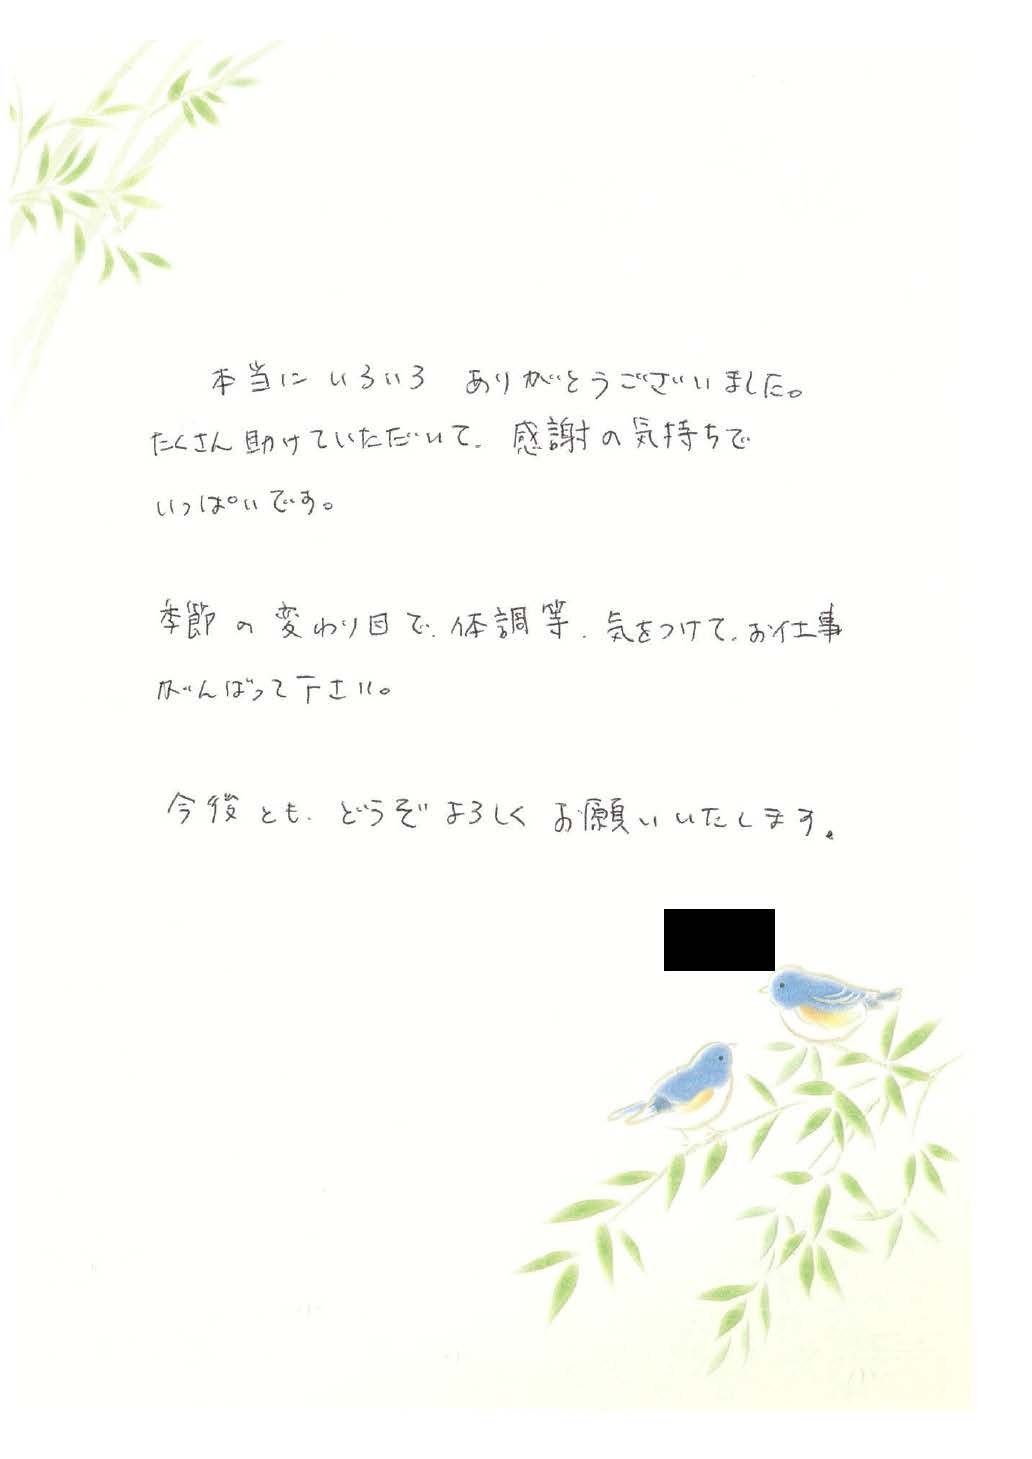 本当に いろいろ ありがとうございました。
たくさん助けていただいて、感謝の気持ちで
いっぱいです。
季節の変わり目で、体調等、気をつけて、お仕事
がんばって下さい。
今後とも、どうぞよろしくお願いいたします。